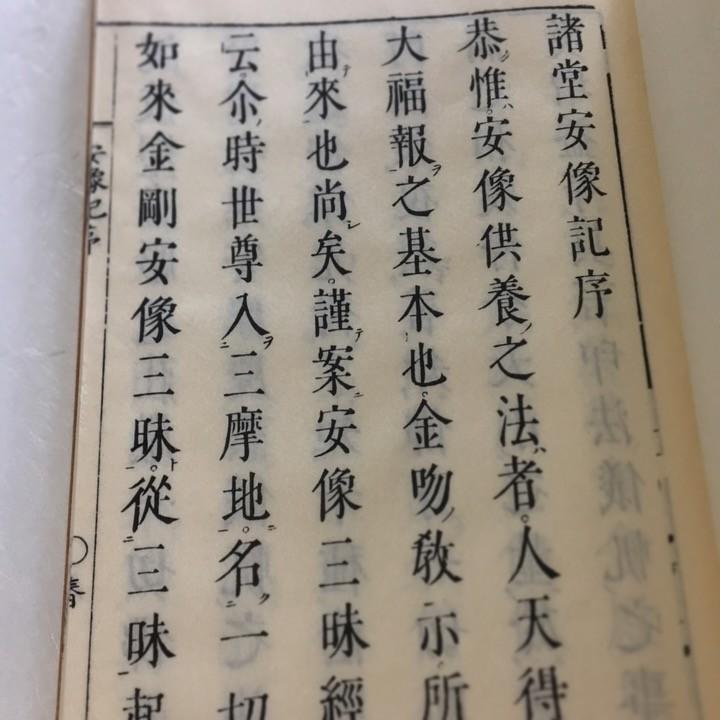 諸堂安像記序
恭惟安像供養之法者。人天得
大福報之基本也。金吻教示所
由來也尚矣。謹案安像三昧經
云。尒時世尊入三摩地。名一切
如來金剛安像三昧。從三昧起
安像記序
〇春